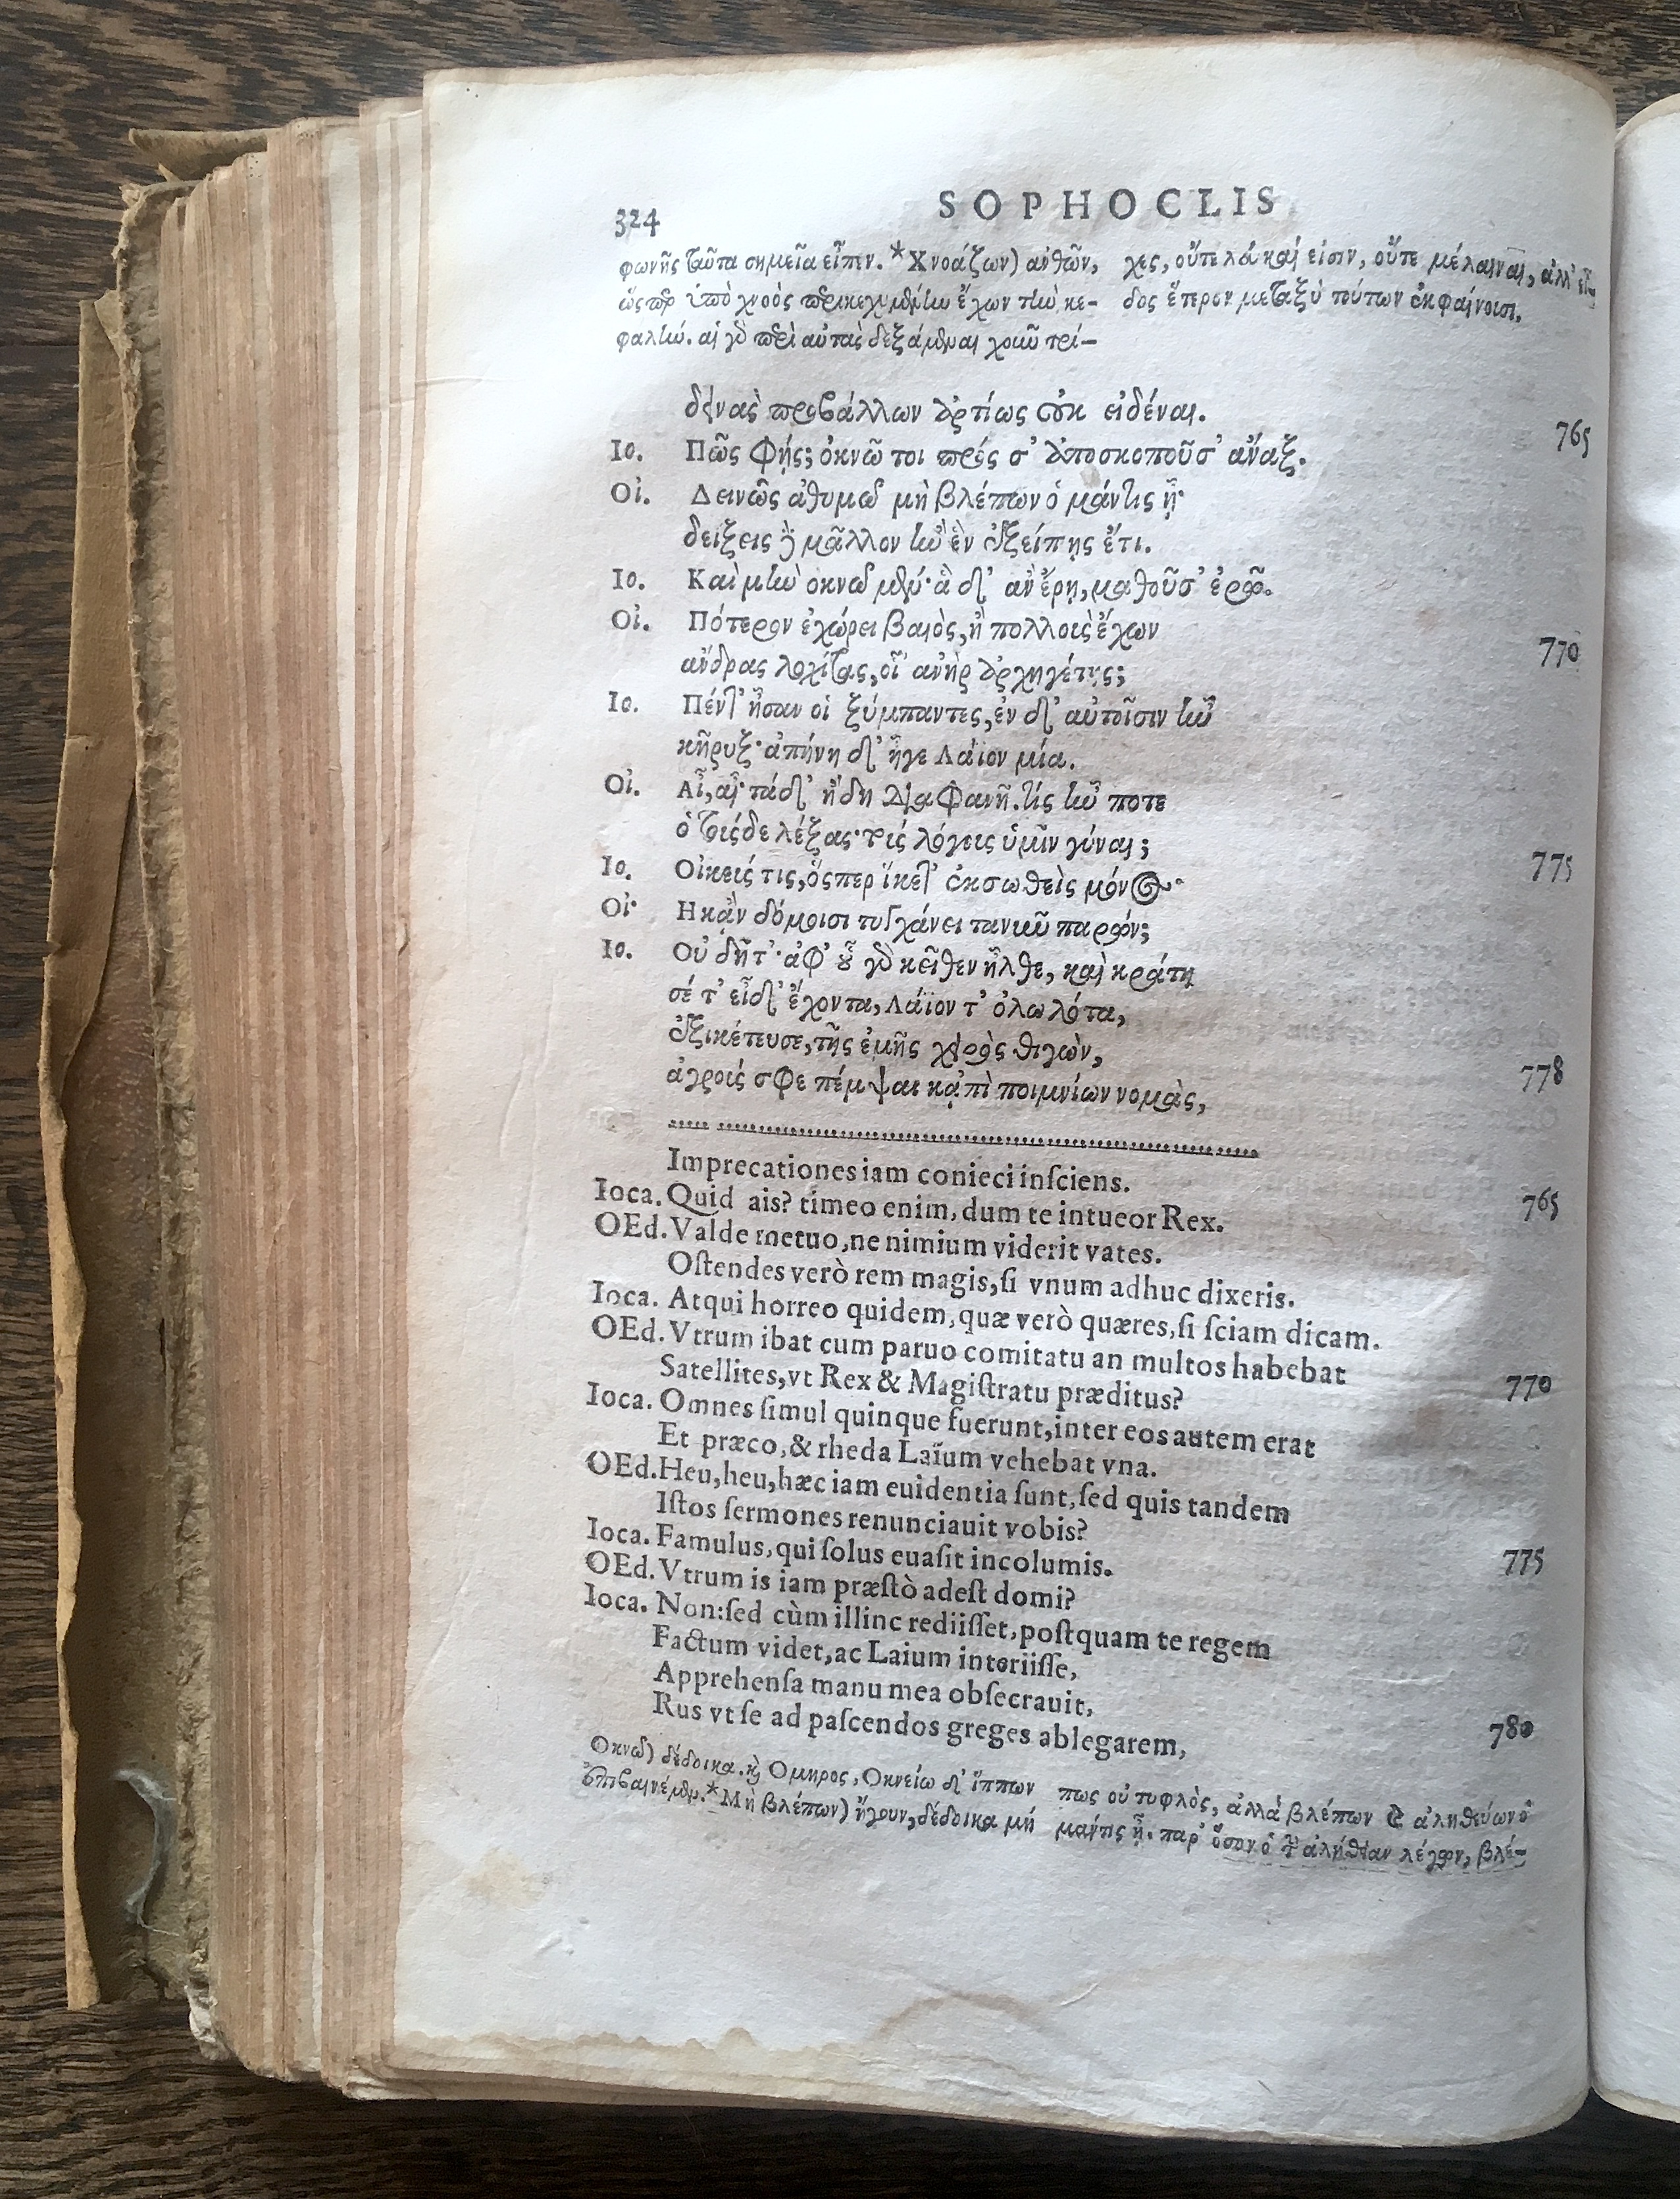 324 SOPHOCLIS
φωνῆς ταῦτα σημεῖα εἶπεν. *Χνοάζων) ἀνθῶν,
ὥσπερ ὑπὸ χνοὸς περικεχυμένην ἔχων τὴν κε-
φαλήν. αἱ γὰρ περὶ αὐτὰς δεξάμεναι χνοῦν τρί-
χες, οὔτε λευκαί εἰσιν, οὔτε μέλαιναι, ἀλλ' εἶ-
δος ἕτερον μεταξὺ τούτων ἐκφαίνουσι.
δεινὰς προβάλλων ἀρτίως οὐκ εἰδέναι.
Ιο. Πῶς φής; ὀκνῶ τοι πρός σ' ἀποσκοποῦσ' ἄναξ. 765
Οἰ. Δεινῶς ἀθυμῶ μὴ βλέπων ὁ μάντις ᾖ·
δείξεις δὲ μᾶλλον ἢν ἓν ἐξείπῃς ἔτι.
Ιο. Καὶ μὴν ὀκνῶ μέν· ἃ δ' ἂν ἔρῃ, μαθοῦσ' ἐρῶ.
Οἰ. Πότερον ἐχώρει βαιὸς, ἢ πολλοὺς ἔχων
ἄνδρας λοχίτας, οἷ' ἀνὴρ ἀρχηγέτης; 770
Ιο. Πέντ' ἦσαν οἱ ξύμπαντες, ἐν δ' αὐτοῖσιν ἦν
κῆρυξ· ἀπήνη δ' ἦγε Λάϊον μία.
Οἰ. Αἶ, αἶ· τάδ' ἤδη διαφανῆ. τίς ἦν ποτε
ὁ τούσδε λέξας τοὺς λόγους ὑμῖν γύναι;
Ιο. Οἰκεύς τις, ὅσπερ ἵκετ' ἐκσωθεὶς μόνος. 775
Οἰ· Η κἀν δόμοισι τυγχάνει τανιῦ παρών;
Ιο. Οὐ δῆτ'· ἀφ' οὗ γὰρ κεῖθεν ἦλθε, καὶ κράτη
σέ τ' εἶδ' ἔχοντα, Λάϊον τ' ὀλωλότα,
ἐξικέτευσε, τῆς ἐμῆς χειρὸς θιγὼν,
ἀγρούς σφε πέμψαι κἀπὶ ποιμνίων νομὰς, 778
Imprecationes iam conieci inſciens.
Ioca. Quid ais? timeo enim, dum te intueor Rex. 765
OEd. Valde metuo, ne nimium viderit vates.
Oſtendes verò rem magis, ſi vnum adhuc dixeris.
Ioca. Atqui horreo quidem, quæ verò quæres, ſi ſciam dicam.
OEd. Vtrum ibat cum paruo comitatu an multos habebat
Satellites, vt Rex & Magiſtratu præditus? 770
Ioca. Omnes ſimul quinque fuerunt, inter eos autem erat
Et præco, & rheda Laïum vehebat vna.
OEd. Heu, heu, hæc iam euidentia ſunt, ſed quis tandem
Iſtos ſermones renunciauit vobis?
Ioca. Famulus, qui ſolus euaſit incolumis. 775
OEd. Vtrum is iam præſtò adeſt domi?
Ioca. Non: ſed cùm illinc rediiſſet, poſtquam te regem
Factum videt, ac Laium interiiſſe,
Apprehenſa manu mea obſecrauit,
Rus vt ſe ad paſcendos greges ablegarem, 780
Οκνῶ) δέδοικα. καὶ Ομηρος, Οκνείω δ' ἵππων
ἐπιβαινέμεν. *Μὴ βλέπων) ἤγουν, δέδοικα μή
πως οὐ τυφλὸς, ἀλλὰ βλέπων καὶ ἀληθεύων ὁ
μάντις ᾖ. παρ' ὅσον ὁ τὴν ἀλήθειαν λέγων, βλέ-